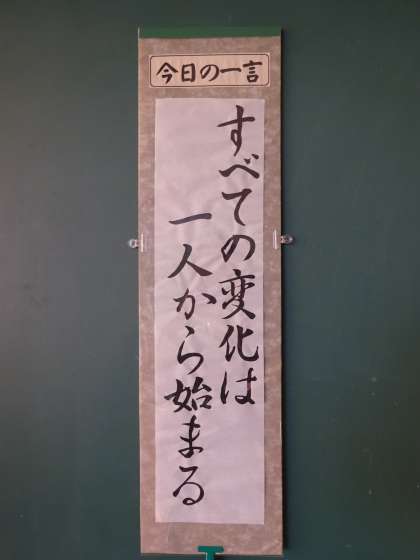 今日の一言
すべての変化は
一人から始まる